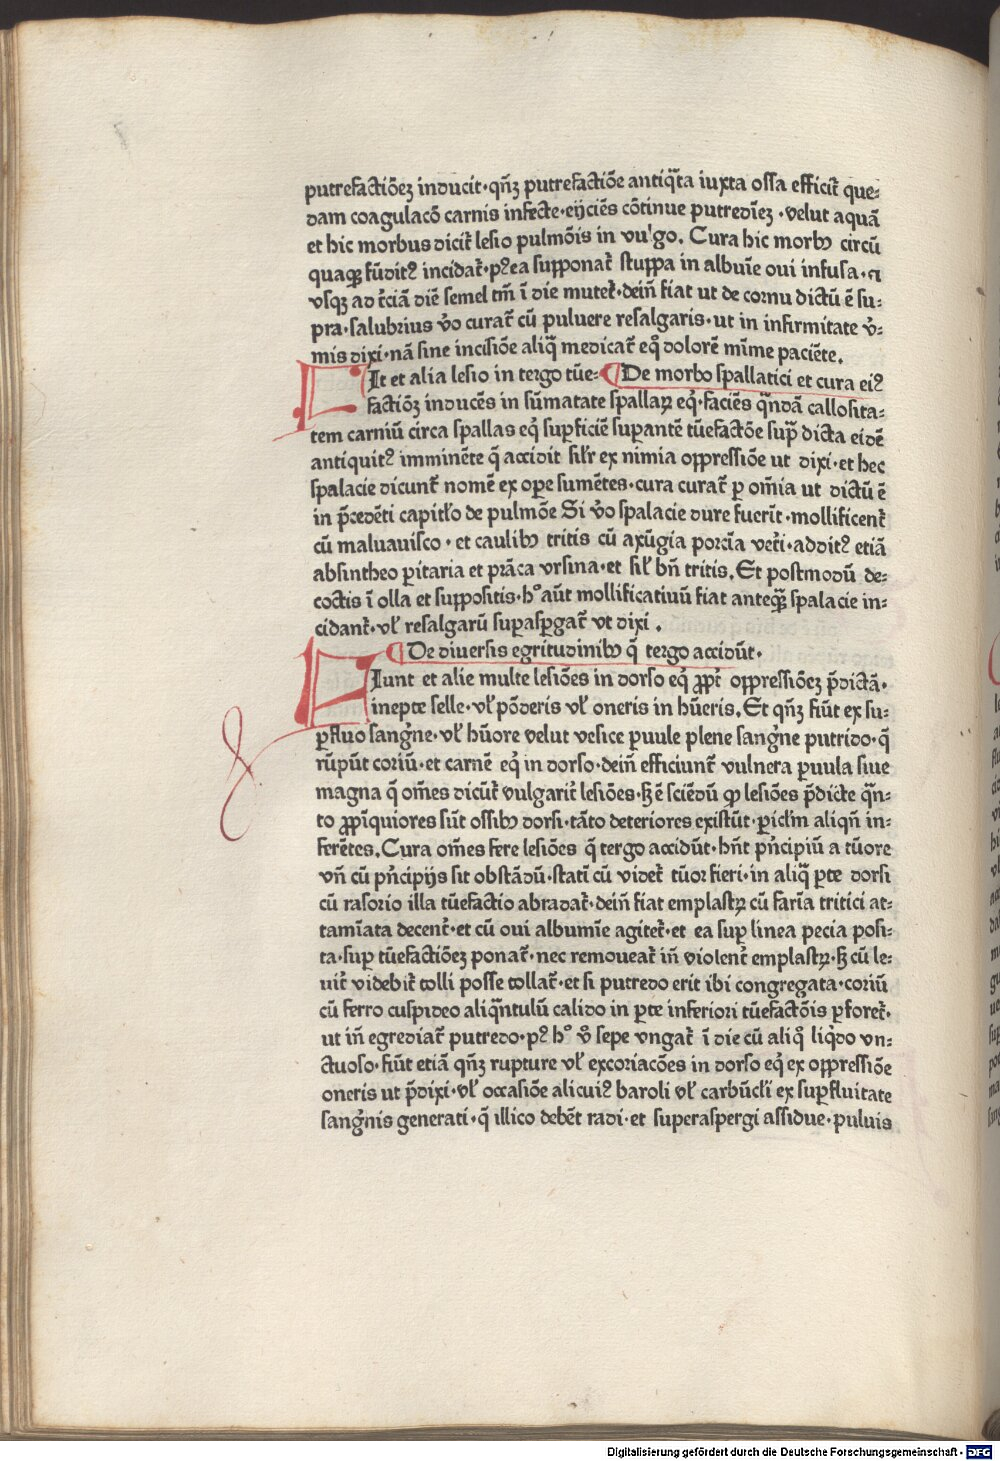 putrefactiōeꝫ inducit·qn̄ꝫ putrefactiōe antiq̄ta iuxta ossa efficit̃ que⸗
dam coagulacō carnis infecte·eijciēs cōtinue putredīeꝫ·velut aquā
et hic morbus dicit̃ lesio pulmōis in vu'go. Cura hic morbꝰ circū
quaqꝫ fūditꝰ incidat̃·pꝰea supponat̃ stuppa in albuīe oui infusa·⁊
vsqꝫ ad t̃ciā diē semel tm̄ ī die mutet̃·dein̄ fiat ut de cornu dictū ē su⸗
pra·salubrius v̊o curat̃ cū puluere resalgaris·ut in infirmitate v̊⸗
mis dixi·nā sine incisiōe aliq̄ medicat̃ eqꝰ dolorē mīme paciēte.
FIt et alia lesio in tergo tūe⸗ ¶De morbo spallatici et cura eiꝰ
factiōꝫ inducēs in sūmatate spallaꝝ eqꝰ·faciēs q̄ndā callosita⸗
tem carniū circa spallas eqꝰ suꝑficiē suꝑantē tūefactōe sup̄ dicta eidē
antiquitꝰ imminēte q̄ accidit sil'r ex nimia oppressiōe ut dixi·et hec
spalacie dicunt̃ nomē ex oꝑe sumētes·cura curat̃ ꝑ om̄ia ut dictū ē
in p̄cedēti capitl'o de pulmōe Si v̊o spalacie dure fuerīt·mollificent̃
cū maluauisco·et caulibꝰ tritis cū axūgia porcīa vet̃i·additꝰ etiā
absintheo ꝑitaria et prāca vrsina·et sil' bn̄ tritis. Et postmodū de⸗
coctis ī olla et suppositis·hº aūt mollificatiuū fiat anteqꝫ̄ spalacie in⸗
cidant̃·vl' resalgarū suꝑasꝑgat̃ vt dixi.
¶De diuersis egritudinibꝰ q̄ tergo accidūt·
FIunt et alie multe lesiōes in dorso eqꝰ ꝓpt̃ oppressiōeꝫ p̄dictā·
inepte selle·vl' pōderis vl' oneris in hūeris. Et qn̄ꝫ fiūt ex su⸗
ꝑfluo sang̃ne·vl' hūore velut vesice ꝑuule plene sang̃ne putrido·q̄
rūpūt coriū·et carnē eqꝰ in dorso·dein̄ efficiunt̃ vulnera ꝑuula siue
magna q̄ om̄es dicūt vulgarit̃ lesiōes·hꝫ ē sciēdū ꝙ lesiōes p̄dicte q̄n⸗
to ꝓpīquiores sūt ossibꝰ dorsi·tāto deteriores existūt·ꝑicl'm aliqn̄ in⸗
ferētes. Cura om̄es fere lesiōes q̄ tergo accidūt·hn̄t pn̄cipiū a tūore
vn̄ cū pn̄cipijs sit obstādū·statī cū videt̃ tūor fieri·in aliq̄ ꝑte dorsi
cū rasorio illa tūefactio abradat̃·dein̄ fiat emplastꝝ cū farīa tritici at⸗
tamīata decent̃·et cū oui albumīe agitet̃·et ea suꝑ linea pecia posi⸗
ta·suꝑ tūefactiōeꝫ ponat̃·nec remoueat̃ in̄ violent̃ emplastꝝ·hꝫ cū le⸗
uit̃ videbit̃ tolli posse tollat̃·et si putredo erit ibi congregata·coriū
cū ferro cuspideo aliq̄ntulū calido in ꝑte inferiori tūefactōis ꝑforet̃·
ut in̄ egrediat̃ putredo·pꝰ hº v̊ sepe vngat̃ ī die cū aliqꝰ liq̄do vn⸗
ctuoso·fiūt etiā qn̄ꝫ rupture vl' excoriacōes in dorso eqꝰ ex oppressiōe
oneris ut p̄dixi·vl' occasiōe alicuiꝰ baroli vl' carbūcl'i ex suꝑfluitate
sang̃nis generati·q̄ illico debēt radi·et superaspergi assidue·puluis
Digitalisierung gefördert durch die Deutsche Forschungsgemeinschaft - DFG